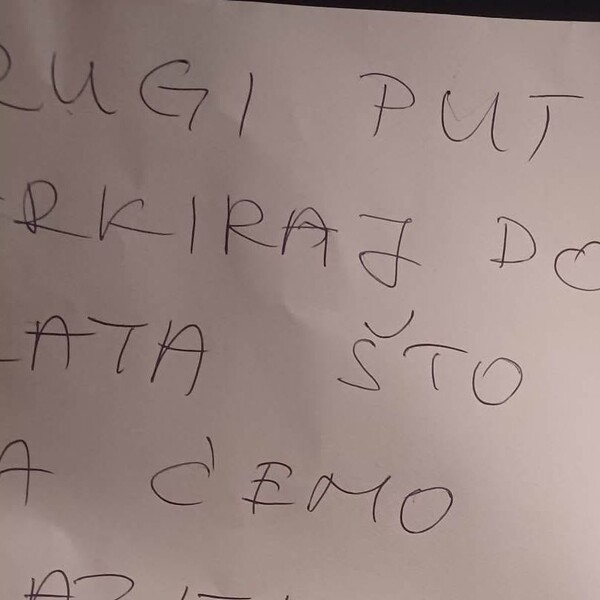 RUGI PUT
RKIRAJ DO
LATA ŠTO
A ĆEMO